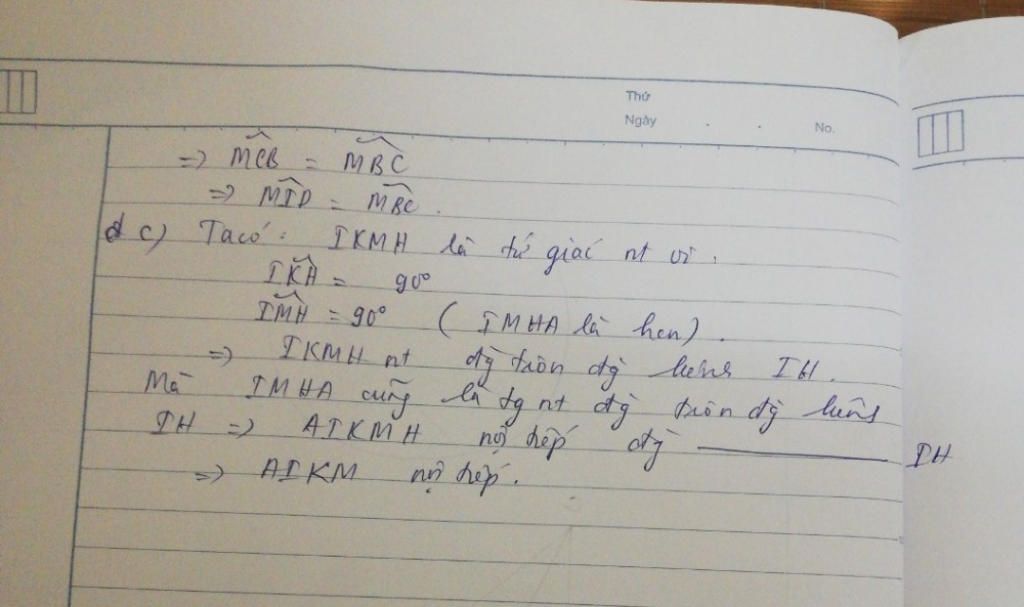 Thứ
Ngày . . No.
=> MCB = MBC
=> MID = MBC.
d c) Ta có: IKMH là tứ giác nt vì.
IKH = 90°
IMH = 90° ( IMHA là hcn).
=> IKMH nt đg tròn đg kính IH.
Mà IMHA cũng là tg nt đg tròn đg kính
IH => AIKMH nội tiếp đg ——— IH
=> AIKM nội tiếp.